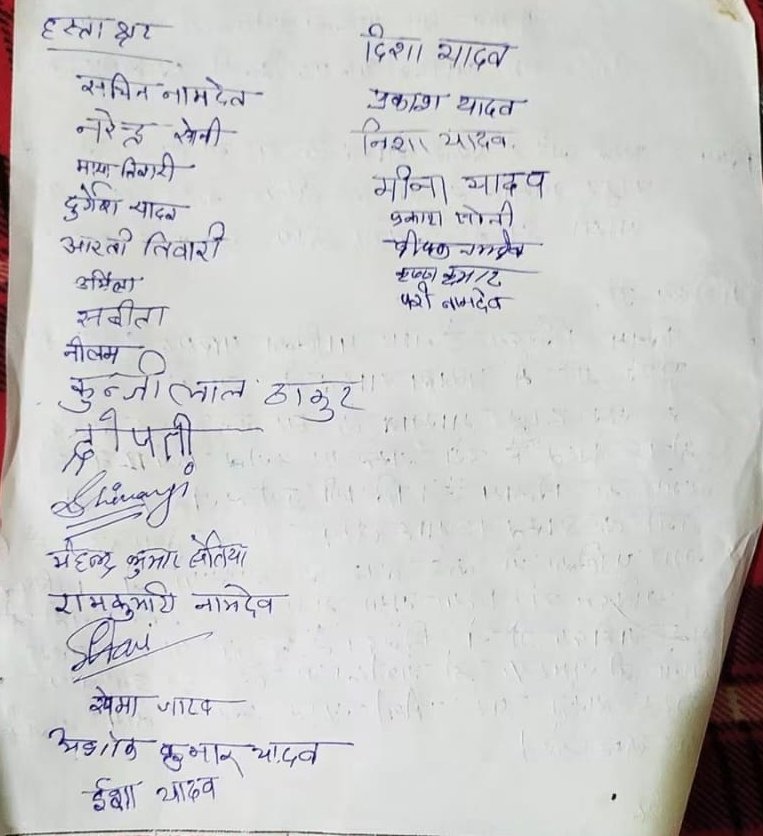 हस्ताक्षर
सचिन नामदेव
नरेन्द्र सोनी
माया तिवारी
दुर्गेश यादव
आरती तिवारी
उर्मिला
सबीता
नीलम
कुन्जीलाल ठाकुर
द्रोपती
Shivangi
महेन्द्र कुमार
रामकुमारी नामदेव
यादव
अशोक कुमार यादव
ईशा यादव
दिशा यादव
प्रकाश यादव
निशा यादव
मीना यादव
प्रकाश सोनी
दीपक नामदेव
कृष्ण कुमार
परी नामदेव